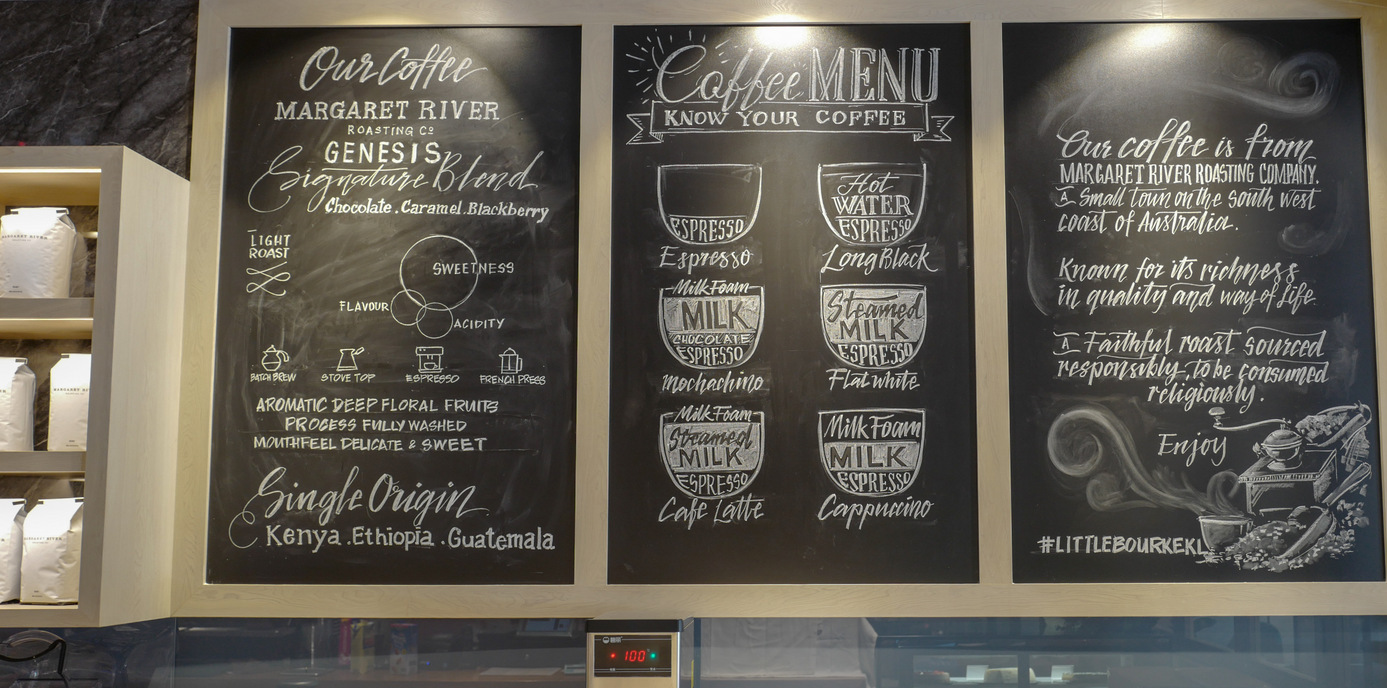 Our Coffee
MARGARET RIVER
ROASTING Co
GENESIS
Signature Blend
Chocolate . Caramel . Blackberry
LIGHT
ROAST
SWEETNESS
FLAVOUR
ACIDITY
BATCH BREW
STOVE TOP
ESPRESSO
FRENCH PRESS
AROMATIC DEEP FLORAL FRUITS
PROCESS FULLY WASHED
MOUTHFEEL DELICATE & SWEET
Single Origin
Kenya . Ethiopia . Guatemala
Coffee MENU
KNOW YOUR COFFEE
ESPRESSO
Espresso
Hot
WATER
ESPRESSO
Long Black
Milk Foam
MILK
CHOCOLATE
ESPRESSO
Mochachino
Steamed
MILK
ESPRESSO
Flat white
Milk Foam
Steamed
MILK
ESPRESSO
Cafe Latte
Milk Foam
MILK
ESPRESSO
Cappuccino
Our coffee is from
MARGARET RIVER ROASTING COMPANY.
A Small town on the south west
coast of Australia.
Known for its richness
in quality and way of life.
A Faithful roast sourced
responsibly, to be consumed
religiously.
Enjoy
#LITTLEBOURKEKL
MARGARET RIVER
100